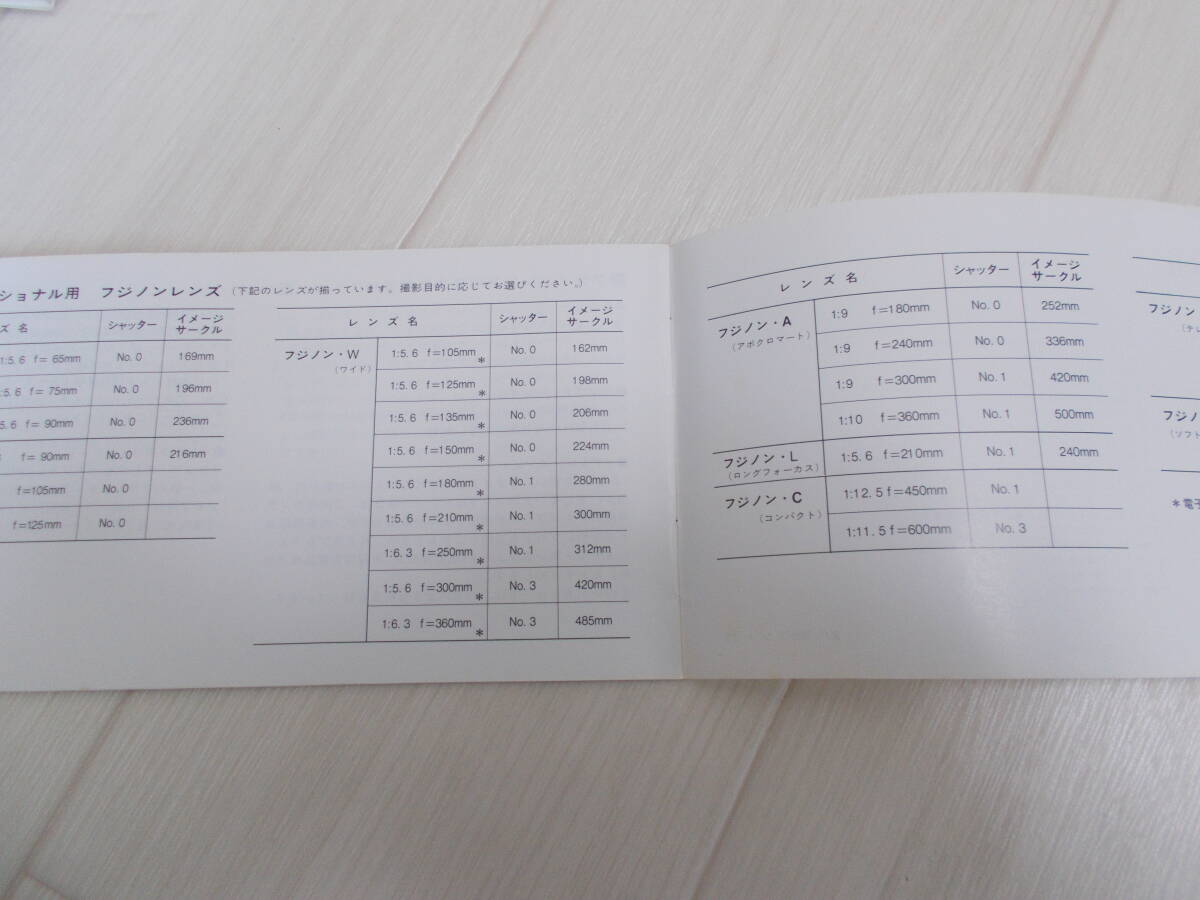 ショナル用 フジノンレンズ (下記のレンズが揃っています。撮影目的に応じてお選びください。)
ズ 名 シャッター イメージサークル
1:5.6 f= 65mm No. 0 169mm
:5.6 f= 75mm No. 0 196mm
5.6 f= 90mm No. 0 236mm
f= 90mm No. 0 216mm
f=105mm No. 0
f=125mm No. 0
レ ン ズ 名 シャッター イメージサークル
フジノン・W 1:5.6 f=105mm* No. 0 162mm
(ワイド)
1:5.6 f=125mm* No. 0 198mm
1:5.6 f=135mm* No. 0 206mm
1:5.6 f=150mm* No. 0 224mm
1:5.6 f=180mm* No. 1 280mm
1:5.6 f=210mm* No. 1 300mm
1:6.3 f=250mm* No. 1 312mm
1:5.6 f=300mm* No. 3 420mm
1:6.3 f=360mm* No. 3 485mm
レ ン ズ 名 シャッター イメージサークル
フジノン・A 1:9 f=180mm No. 0 252mm
(アポクロマート)
1:9 f=240mm No. 0 336mm
1:9 f=300mm No. 1 420mm
1:10 f=360mm No. 1 500mm
フジノン・L 1:5.6 f=210mm No. 1 240mm
(ロングフォーカス)
フジノン・C 1:12.5 f=450mm No. 1
(コンパクト)
1:11.5 f=600mm No. 3
フジノン
(テレ
フジノ
(ソフト
*電子